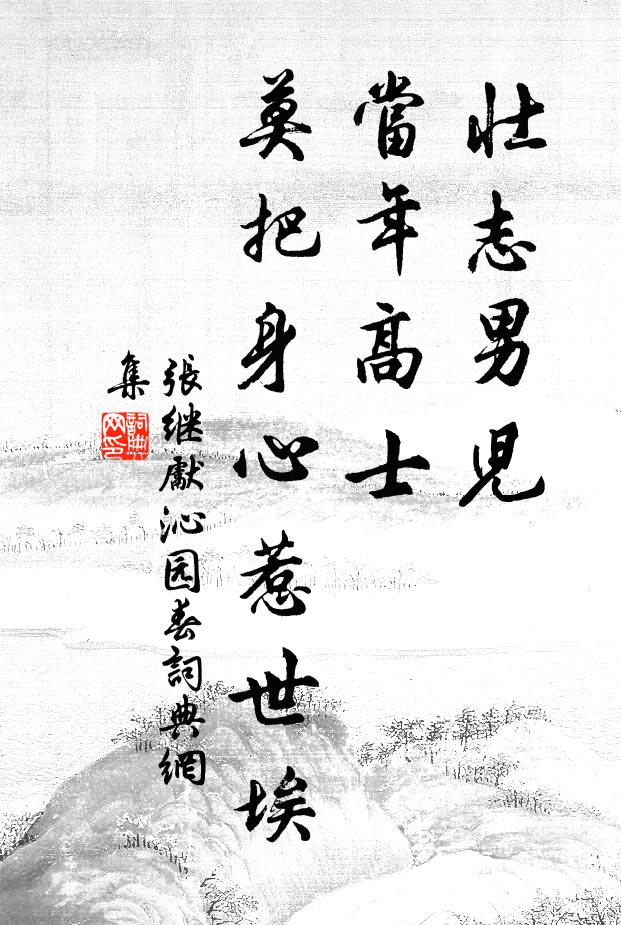 壮志男児
當年高士
莫把身心惹世埃
張继獻沁园春詞典網
集
詞典
网印